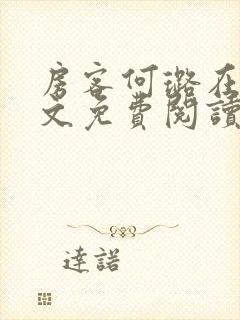 房客何璐在
文免費閱讀
達諾